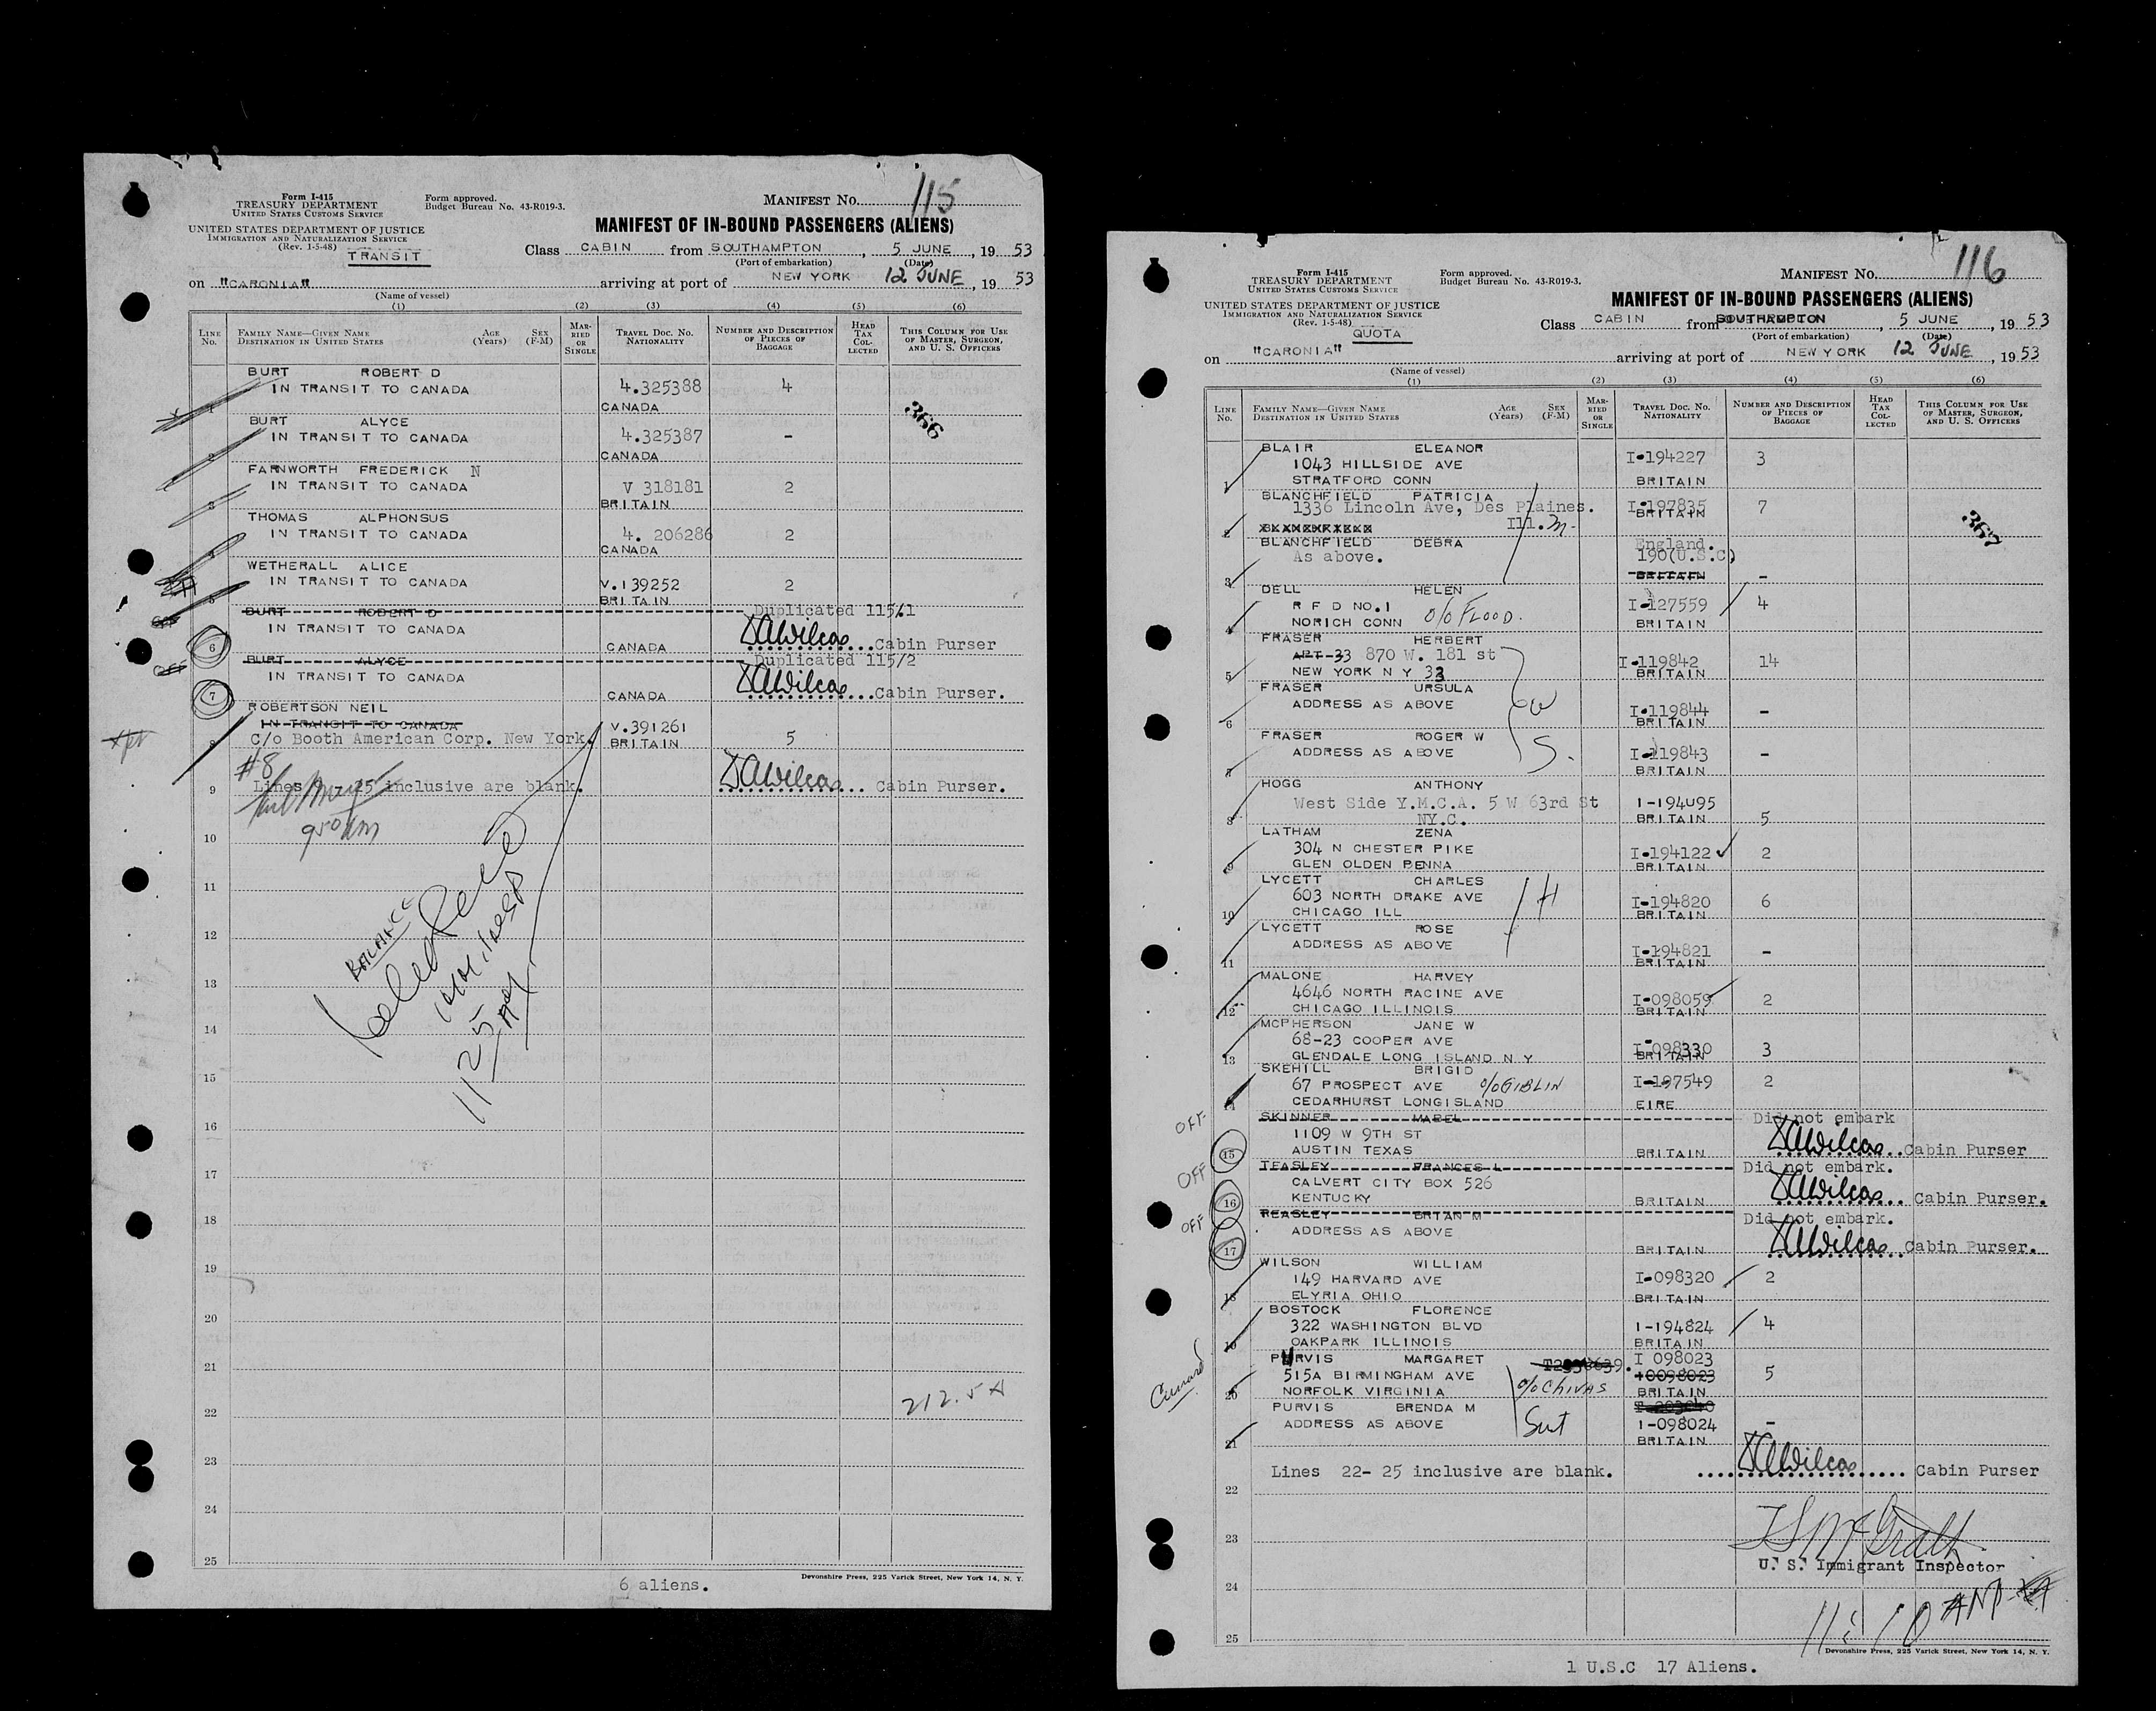 Form I-415
TREASURY DEPARTMENT
UNITED STATES CUSTOMS SERVICE
UNITED STATES DEPARTMENT OF JUSTICE
IMMIGRATION AND NATURALIZATION SERVICE
(Rev. 1-5-48)
TRANSIT
Form approved.
Budget Bureau No. 43-R019-3.
MANIFEST NO. 115
MANIFEST OF IN-BOUND PASSENGERS (ALIENS)
Class CABIN from SOUTHAMPTON, 5 JUNE, 19 53
(Port of embarkation) (Date)
on "CARONIA" arriving at port of NEW YORK 12 JUNE, 19 53
(Name of vessel)
(1) (2) (3) (4) (5) (6)
LINE No. FAMILY NAME—GIVEN NAME DESTINATION IN UNITED STATES AGE (Years) SEX (F-M) MARRIED OR SINGLE TRAVEL DOC. NO. NATIONALITY NUMBER AND DESCRIPTION OF PIECES OF BAGGAGE HEAD TAX COLLECTED THIS COLUMN FOR USE OF MASTER, SURGEON, AND U. S. OFFICERS
BURT ROBERT D
1 IN TRANSIT TO CANADA 4.325388 4
CANADA
366
BURT ALYCE
2 IN TRANSIT TO CANADA 4.325387 -
CANADA
FARNWORTH FREDERICK N
3 IN TRANSIT TO CANADA V 318181 2
BRITAIN
THOMAS ALPHONSUS
4 IN TRANSIT TO CANADA 4. 206286 2
CANADA
WETHERALL ALICE
5 IN TRANSIT TO CANADA V.139252 2
BRITAIN
BURT ROBERT D Duplicated 115/1
IN TRANSIT TO CANADA
6 CANADA DAWilcox Cabin Purser
BURT ALYCE Duplicated 115/2
IN TRANSIT TO CANADA
7 CANADA DAWilcox Cabin Purser.
ROBERTSON NEIL
IN TRANSIT TO CANADA V.391261
8 C/o Booth American Corp. New York. BRITAIN 5
#8
9 Lines 9 - 25 inclusive are blank. DAWilcox Cabin Purser.
950 AM
10
11
12
BALANCE
13
14
1125 AM
15
16
17
18
19
20
21
212.5
22
23
24
25
6 aliens.
Devonshire Press, 225 Varick Street, New York 14, N. Y.
Form I-415
TREASURY DEPARTMENT
UNITED STATES CUSTOMS SERVICE
UNITED STATES DEPARTMENT OF JUSTICE
IMMIGRATION AND NATURALIZATION SERVICE
(Rev. 1-5-48)
QUOTA
Form approved.
Budget Bureau No. 43-R019-3.
MANIFEST NO. 116
MANIFEST OF IN-BOUND PASSENGERS (ALIENS)
Class CABIN from SOUTHAMPTON, 5 JUNE, 19 53
(Port of embarkation) (Date)
on "CARONIA" arriving at port of NEW YORK 12 JUNE, 19 53
(Name of vessel)
(1) (2) (3) (4) (5) (6)
LINE No. FAMILY NAME—GIVEN NAME DESTINATION IN UNITED STATES AGE (Years) SEX (F-M) MARRIED OR SINGLE TRAVEL DOC. NO. NATIONALITY NUMBER AND DESCRIPTION OF PIECES OF BAGGAGE HEAD TAX COLLECTED THIS COLUMN FOR USE OF MASTER, SURGEON, AND U. S. OFFICERS
BLAIR ELEANOR
1043 HILLSIDE AVE I-194227 3
1 STRATFORD CONN BRITAIN
BLANCHFIELD PATRICIA
1336 Lincoln Ave, Des Plaines. I-197835 7
BRITAIN
2 Ill. M-
367
BLANCHFIELD DEBRA England.
As above. 190(U.S.C)
3 BRITAIN -
DELL HELEN
R F D NO.1 I-127559 4
4 NORICH CONN c/o FLOOD. BRITAIN
FRASER HERBERT
APT 33 870 W. 181 st I-119842 14
5 NEW YORK N Y 33 BRITAIN
FRASER URSULA
ADDRESS AS ABOVE I-119844 -
6 BRITAIN
FRASER ROGER W
ADDRESS AS ABOVE I-119843 -
7 S. BRITAIN
HOGG ANTHONY
West Side Y.M.C.A. 5 W 63rd St I-194095
8 NY.C. BRITAIN 5
LATHAM ZENA
304 N CHESTER PIKE I-194122 2
9 GLEN OLDEN PENNA BRITAIN
LYCETT CHARLES
603 NORTH DRAKE AVE H I-194820 6
10 CHICAGO ILL BRITAIN
LYCETT ROSE
ADDRESS AS ABOVE I-194821 -
11 BRITAIN
MALONE HARVEY
4646 NORTH RACINE AVE I-098059 2
12 CHICAGO ILLINOIS BRITAIN
MCPHERSON JANE W
68-23 COOPER AVE I-098330 3
13 GLENDALE LONG ISLAND N Y BRITAIN
SKEHILL BRIGID
67 PROSPECT AVE c/o GIBLIN I-197549 2
14 CEDARHURST LONGISLAND EIRE
OFF SKINNER MABEL Did not embark
1109 W 9TH ST
15 AUSTIN TEXAS BRITAIN DAWilcox Cabin Purser
OFF TEASLEY FRANCES L Did not embark.
CALVERT CITY BOX 526
16 KENTUCKY BRITAIN DAWilcox Cabin Purser.
OFF TEASLEY BRIAN M Did not embark.
ADDRESS AS ABOVE
17 BRITAIN DAWilcox Cabin Purser.
WILSON WILLIAM
149 HARVARD AVE I-098320 2
18 ELYRIA OHIO BRITAIN
BOSTOCK FLORENCE
322 WASHINGTON BLVD I-194824 4
19 OAKPARK ILLINOIS BRITAIN
PURVIS MARGARET I 098023
Cunard 515A BIRMINGHAM AVE I0098023 5
20 NORFOLK VIRGINIA c/o Chivas BRITAIN
PURVIS BRENDA M
ADDRESS AS ABOVE I-098024 -
21 BRITAIN
Lines 22- 25 inclusive are blank. DAWilcox Cabin Purser
22
23 McGrath
U. S. Immigrant Inspector
24
11:10 AM
25
Devonshire Press, 225 Varick Street, New York 14, N. Y.
1 U.S.C 17 Aliens.